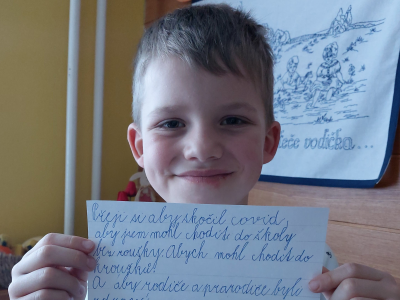 eče vodička...
Přeji si aby skočil covid,
aby jsem mohl chodit do školy
bez roušky. Abych mohl chodit do
kroužků!
A aby rodiče a prarodiče byli